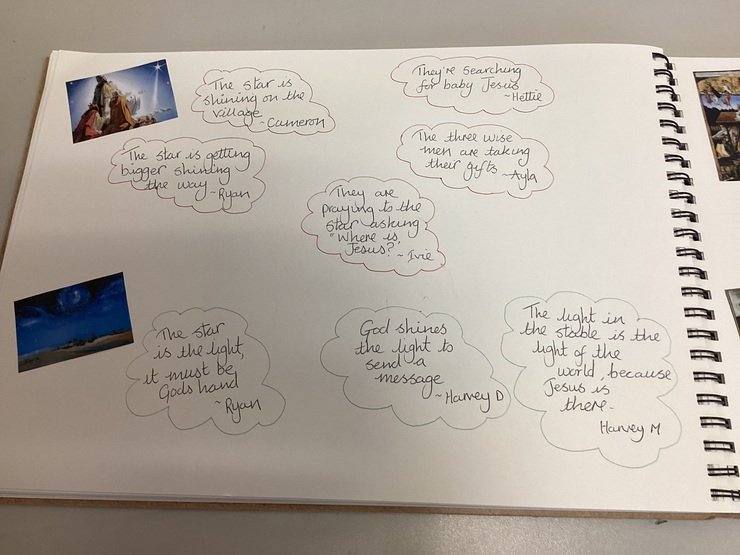 The star is
shining on the
village
~Cameron
They're searching
for baby Jesus
~Hettie
The star is getting
bigger shining
the way ~Ryan
The three wise
men are taking
their gifts ~Ayla
They are
praying to the
star asking
"Where is
Jesus?" ~ Ivie
The star
is the light,
it must be
Gods hand
~ Ryan
God shines
the light to
send a
message
~Harvey D
The light in
the stable is the
light of the
world, because
Jesus is
there.
Harvey M